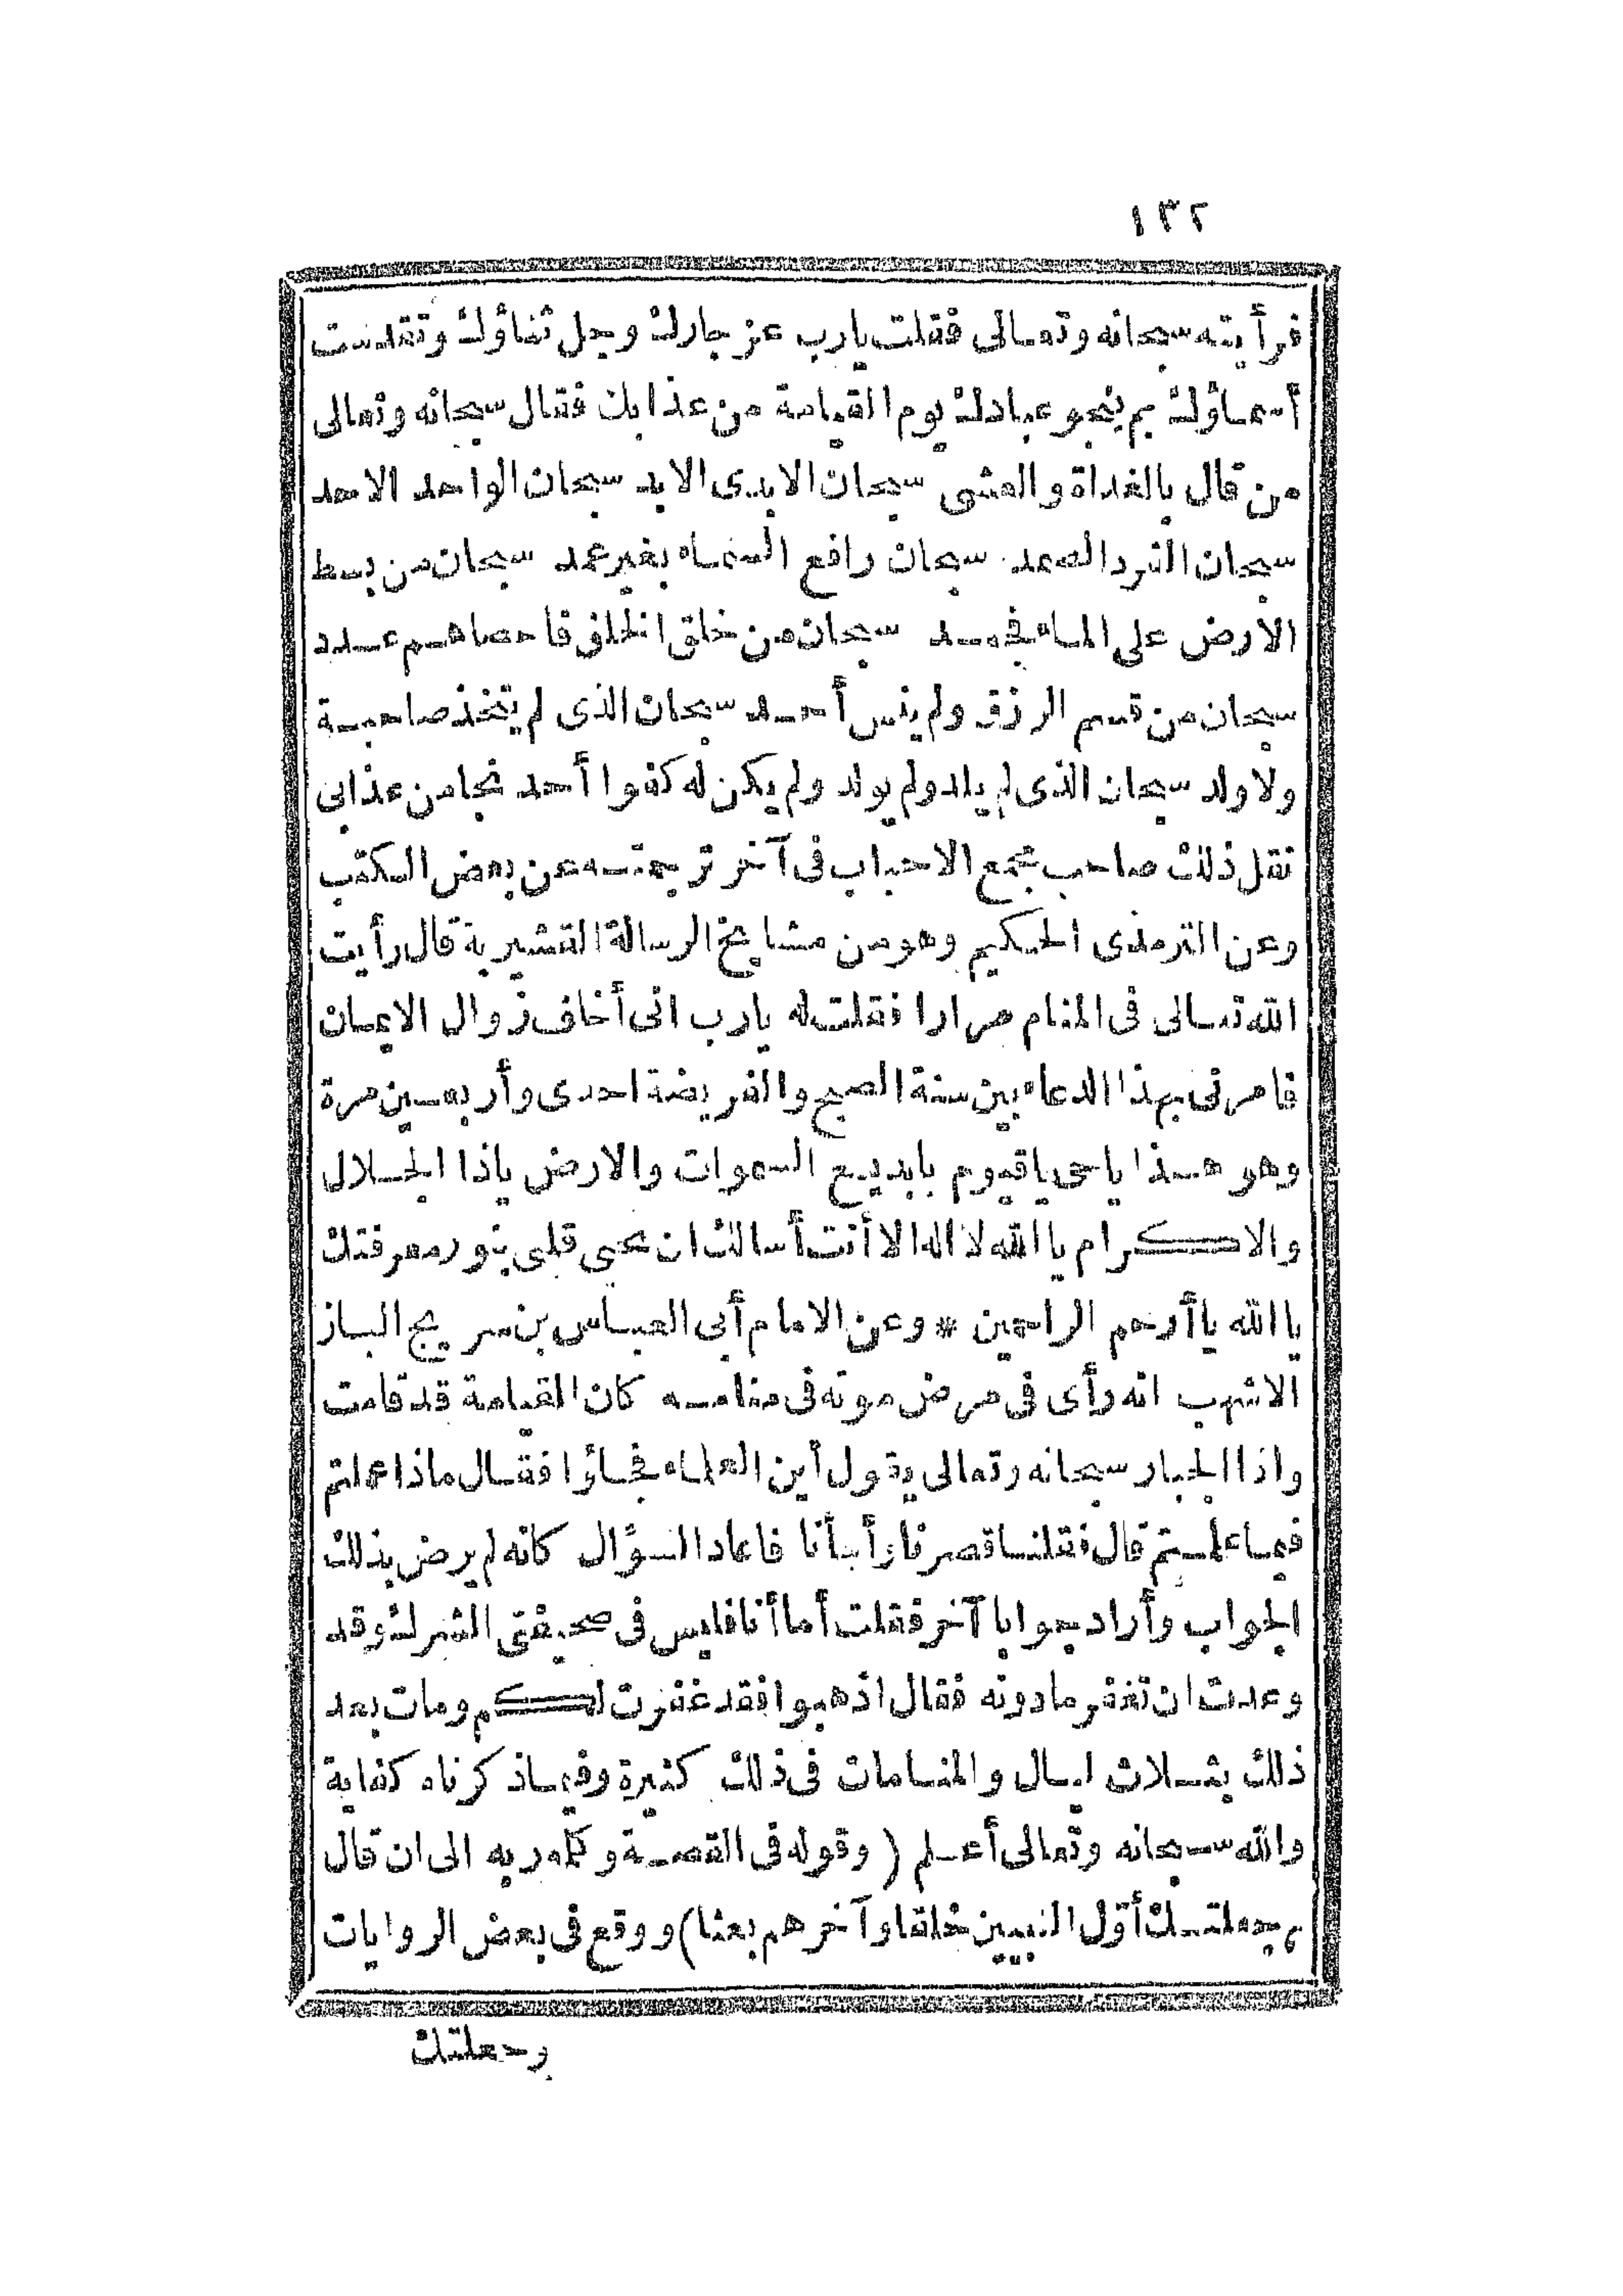 ١٣٢
فرأيته سبحانه وتعالى فقلت يارب عز جارك وجل ثناؤك وتقدست
أسماؤك بم ينجو عبادك يوم القيامة من عذابك فقال سبحانه وتعالى
من قال بالغداة والعشى سبحان الابدى الابد سبحان الواحد الاحد
سبحان الفرد الصمد سبحان رافع السماء بغير عمد سبحان من بسط
الارض على الماء فجمد سبحان من خلق الخلق فاحصاهم عدد
سبحان من قسم الرزق ولم ينس أحد سبحان الذى لم يتخذ صاحبة
ولا ولد سبحان الذى لم يلد ولم يولد ولم يكن له كفوا أحد نجا من عذابى
نقل ذلك صاحب مجمع الاحباب فى آخر ترجمته عن بعض الكتب
وعن الترمذى الحكيم وهو من مشايخ الرسالة القشيرية قال رأيت
الله تعالى فى المنام مرارا فقلت له يارب انى أخاف زوال الايمان
فامرنى بهذا الدعاء بين سنة الصبح والفريضة احدى وأربعين مرة
وهو هذا ياحى ياقيوم يابديع السموات والارض ياذا الجلال
والاكرام يا الله لا اله الا أنت أسالك ان تحيى قلبى بنور معرفتك
يا الله يا أرحم الراحمين * وعن الامام أبى العباس بن سريج الباز
الاشهب انه رأى فى مرض موته فى منامه كان القيامة قد قامت
واذا الجبار سبحانه وتعالى يقول أين العلماء فجاؤا فقال ماذا عملتم
فيما علمتم قال فقلنا قصرنا وأسأنا فاعاد السؤال كانه لم يرض بذلك
الجواب وأراد جوابا آخر فقلت أما أنا فليس فى صحيفتى الشرك وقد
وعدت ان تغفر مادونه فقال اذهبوا فقد غفرت لكم ومات بعد
ذلك بثلاث ليال والمنامات فى ذلك كثيرة وفيما ذكرناه كفاية
والله سبحانه وتعالى أعلم (وقوله فى القصة وكلمه ربه الى ان قال
جعلتك أوّل النبيين خلقا وآخرهم بعثا) ووقع فى بعض الروايات
وجعلتك